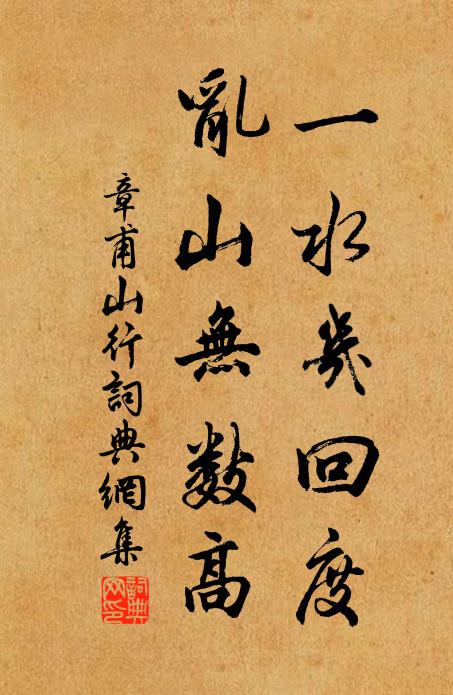 一水幾回度
亂山無数高
章甫山行詞典網集
詞典網印